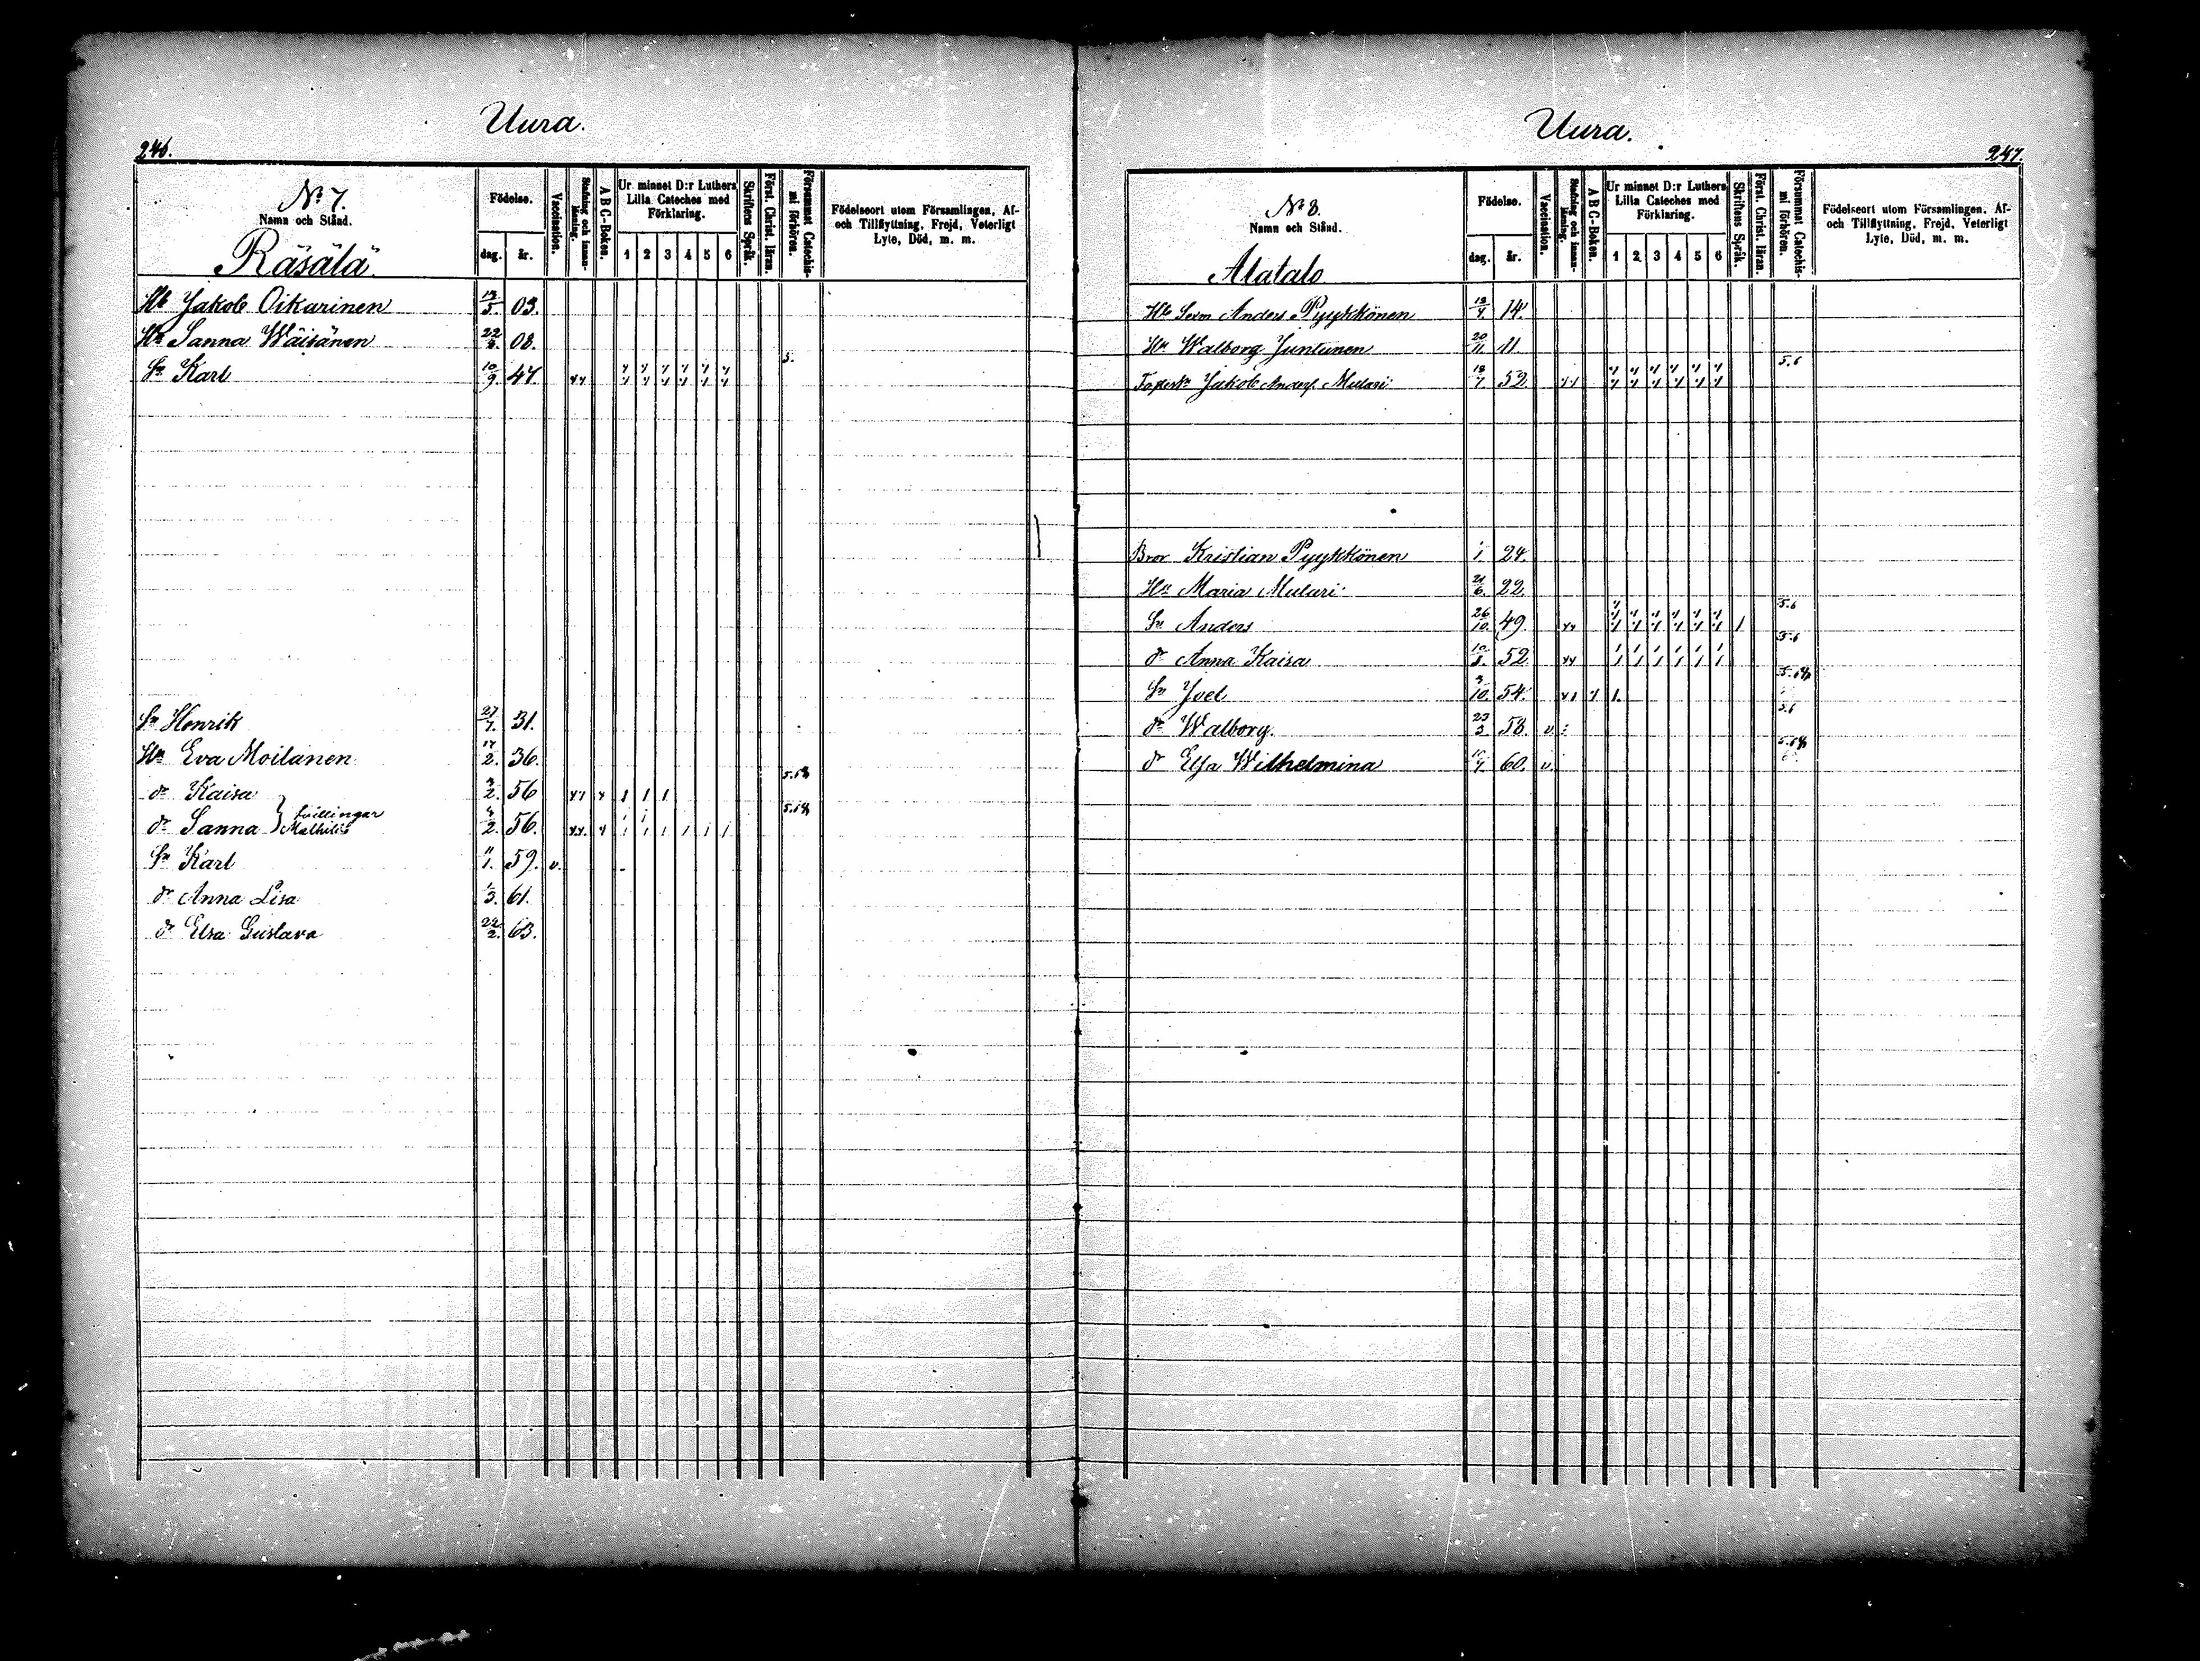 Uura.
246.
No 7.
Namn och Stånd.
Räsälä
Födelse.
dag. år.
Vaccination.
Stafning och innanläsning.
A B C-Boken.
Ur minnet D:r Luthers Lilla Cateches med Förklaring.
1 2 3 4 5 6
Skriftens Språk.
Först. Christ. läran.
Försummat Catechismi förhören.
Födelseort utom Församlingen, Af-
och Tillflyttning, Frejd, Veterligt
Lyte, Död, m. m.
Hb Jakob Oikarinen 03.
Hu Sanna Wäisänen 08.
Sn Karl 10/9 47. 5.
Sn Henrik 27/7. 31.
Hu Eva Moilanen 17/2. 36.
dr Kaisa 2. 56
dr Sanna Mathilda } tvillingar 2. 56.
Sn Karl 11/1. 59. v.
dr Anna Lisa 1/3. 61.
dr Elsa Gustava 22/2. 63.
Uura.
247.
No 8.
Namn och Stånd.
Alatalo
Födelse.
dag. år.
Vaccination.
Stafning och innanläsning.
A B C-Boken.
Ur minnet D:r Luthers
Lilla Cateches med
Förklaring.
1 2 3 4 5 6
Skriftens Språk.
Först. Christ. läran.
Försummat Catechismi förhören.
Födelseort utom Församlingen, Af-
och Tillflyttning, Frejd, Veterligt
Lyte, Död, m. m.
Hb Sexm Anders Pyykkönen 14.
Hu Walborg Juntunen 20/11. 11.
Jakob Anders. Mulari 52. 5.6
Bror Kristian Pyykkönen 1. 24.
Hu Maria Mulari 21/6. 22.
Sn Anders 26/10. 49. 5.6
dr Anna Kaisa 52. 5.6
Sn Joel 10. 54.
dr Walborg 23/3 58. v. 5.6
dr Elsa Wilhelmina 60. v.